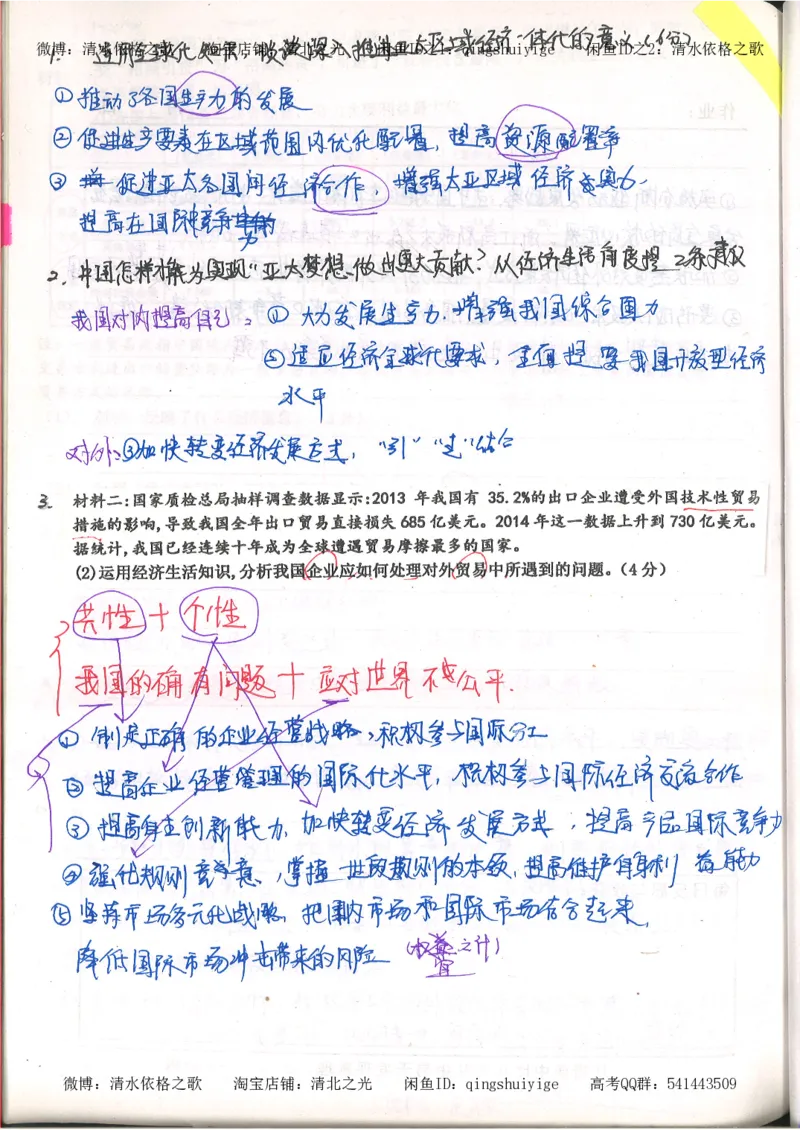 微博：清水依格之歌 淘宝店铺：清北之光 闲鱼ID之1：qingshuiyige 闲鱼ID之2：清水依格之歌
1. 运用全球化知识，谈谈深入推进亚太区域经济一体化的意义（6分）
①推动了各国生产力的发展
②促进生产要素在区域范围内优化配置，提高资源配置率
③促进亚太各国间经济合作，增强太亚区域经济实力
提高在国际竞争力
2. 中国怎样才能为实现“亚太梦想”做出更大贡献？从经济生活角度提2条建议
我国对内提高自己：①大力发展生产力，增强我国综合国力
②适应经济全球化要求，全面提高我国开放型经济
水平
对外：③加快转变经济发展方式，“引”“走”结合
3. 材料二：国家质检总局抽样调查数据显示：2013 年我国有 35.2%的出口企业遭受外国技术性贸易
措施的影响，导致我国全年出口贸易直接损失 685 亿美元。2014 年这一数据上升到 730 亿美元。
据统计，我国已经连续十年成为全球遭遇贸易摩擦最多的国家。
(2)运用经济生活知识，分析我国企业应如何处理对外贸易中所遇到的问题。（4 分）
共性＋个性
我国的确有问题＋应对世界不公平．
①制定正确的企业经营战略，积极参与国际分工
②提高企业经营管理的国际化水平，积极参与国际经济交流合作
③提高自主创新能力，加快转变经济发展方式，提高产品国际竞争力
④强化规则竞争意，掌握世贸规则的本领，提高维护自身利益能力
⑤坚持市场多元化战略，把国内市场和国际市场结合起来，
降低国际市场冲击带来的风险（权宜之计）
微博：清水依格之歌 淘宝店铺：清北之光 闲鱼ID：qingshuiyige 高考QQ群：541443509